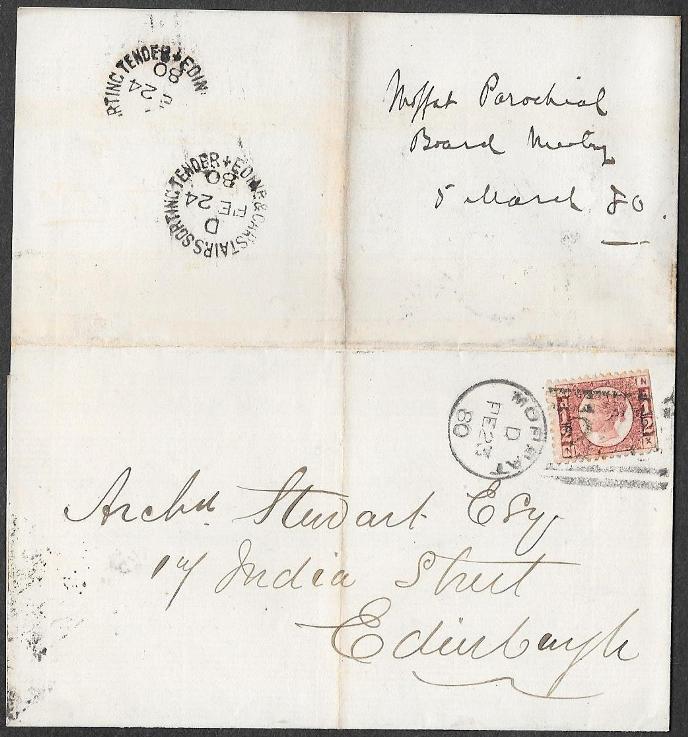 RTING TENDER + EDIN
80
24
SORTING TENDER + EDINR & CARSTAIRS
80
FE 24
D
Moffat Parochial
Board Meeting
5 March 80.
MOFFAT
D
FE 23
80
N
1/2
1/2
X
Archd Stewart Esq
17 India Street
Edinburgh